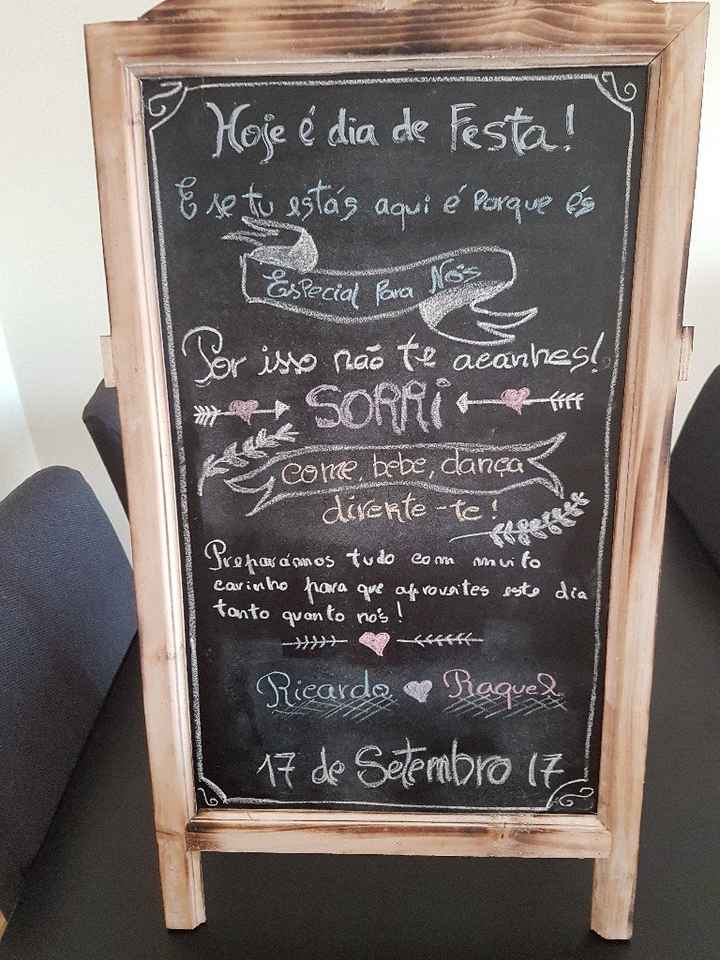 Hoje é dia de Festa!
E se tu estás aqui é Porque és
Especial Para Nós
Por isso não te acanhes!
SORRI
come, bebe, dança
diverte-te!
Preparámos tudo com muito
carinho para que aproveites este dia
tanto quanto nós!
Ricardo Raquel
17 de Setembro 17